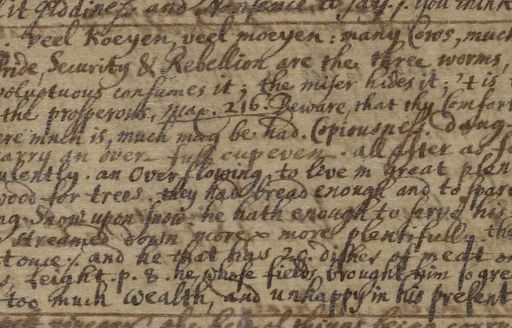 it giddiness and Nonsence to say. /. you think
. veel Koeyen, veel moeyen: many Cows, much
ride, Security & Rebellion are the three worms,
voluptuous consumes it; the miser hides it; 't is
the prosperous, Map. 216. Beware, that thy Comfort
ere much is, much may be had. Copiousness. dang
carry an over full cup even. all after as
ulently. an Overflowing, to live in great plen
wood for trees. they had bread enough and to spare
ng. Snow upon snow. he hath enough to serve his
streamed down more & more plentifull. the
and he that has 20 dishes of meat on
s, Leight. p. 8. he, whose fields brought him so gre
too much Wealth, and unhappy in his present